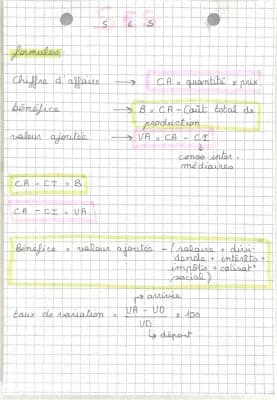 SES
S E S
formules
Chiffre d'affaire → CA = quantité × prix
bénéfice → B = CA - Coût total de
production
valeur ajoutée → VA = CA - CI
↓
conso inter-
médiaires
CA - CT = B
CA - CI = VA
Bénéfice = valeur ajoutée - (salaire + divi-
dende + intérêts +
impôts + cotisat°
social)
→ arrivée
taux de variation = VA - VD / VD × 100
↳ départ